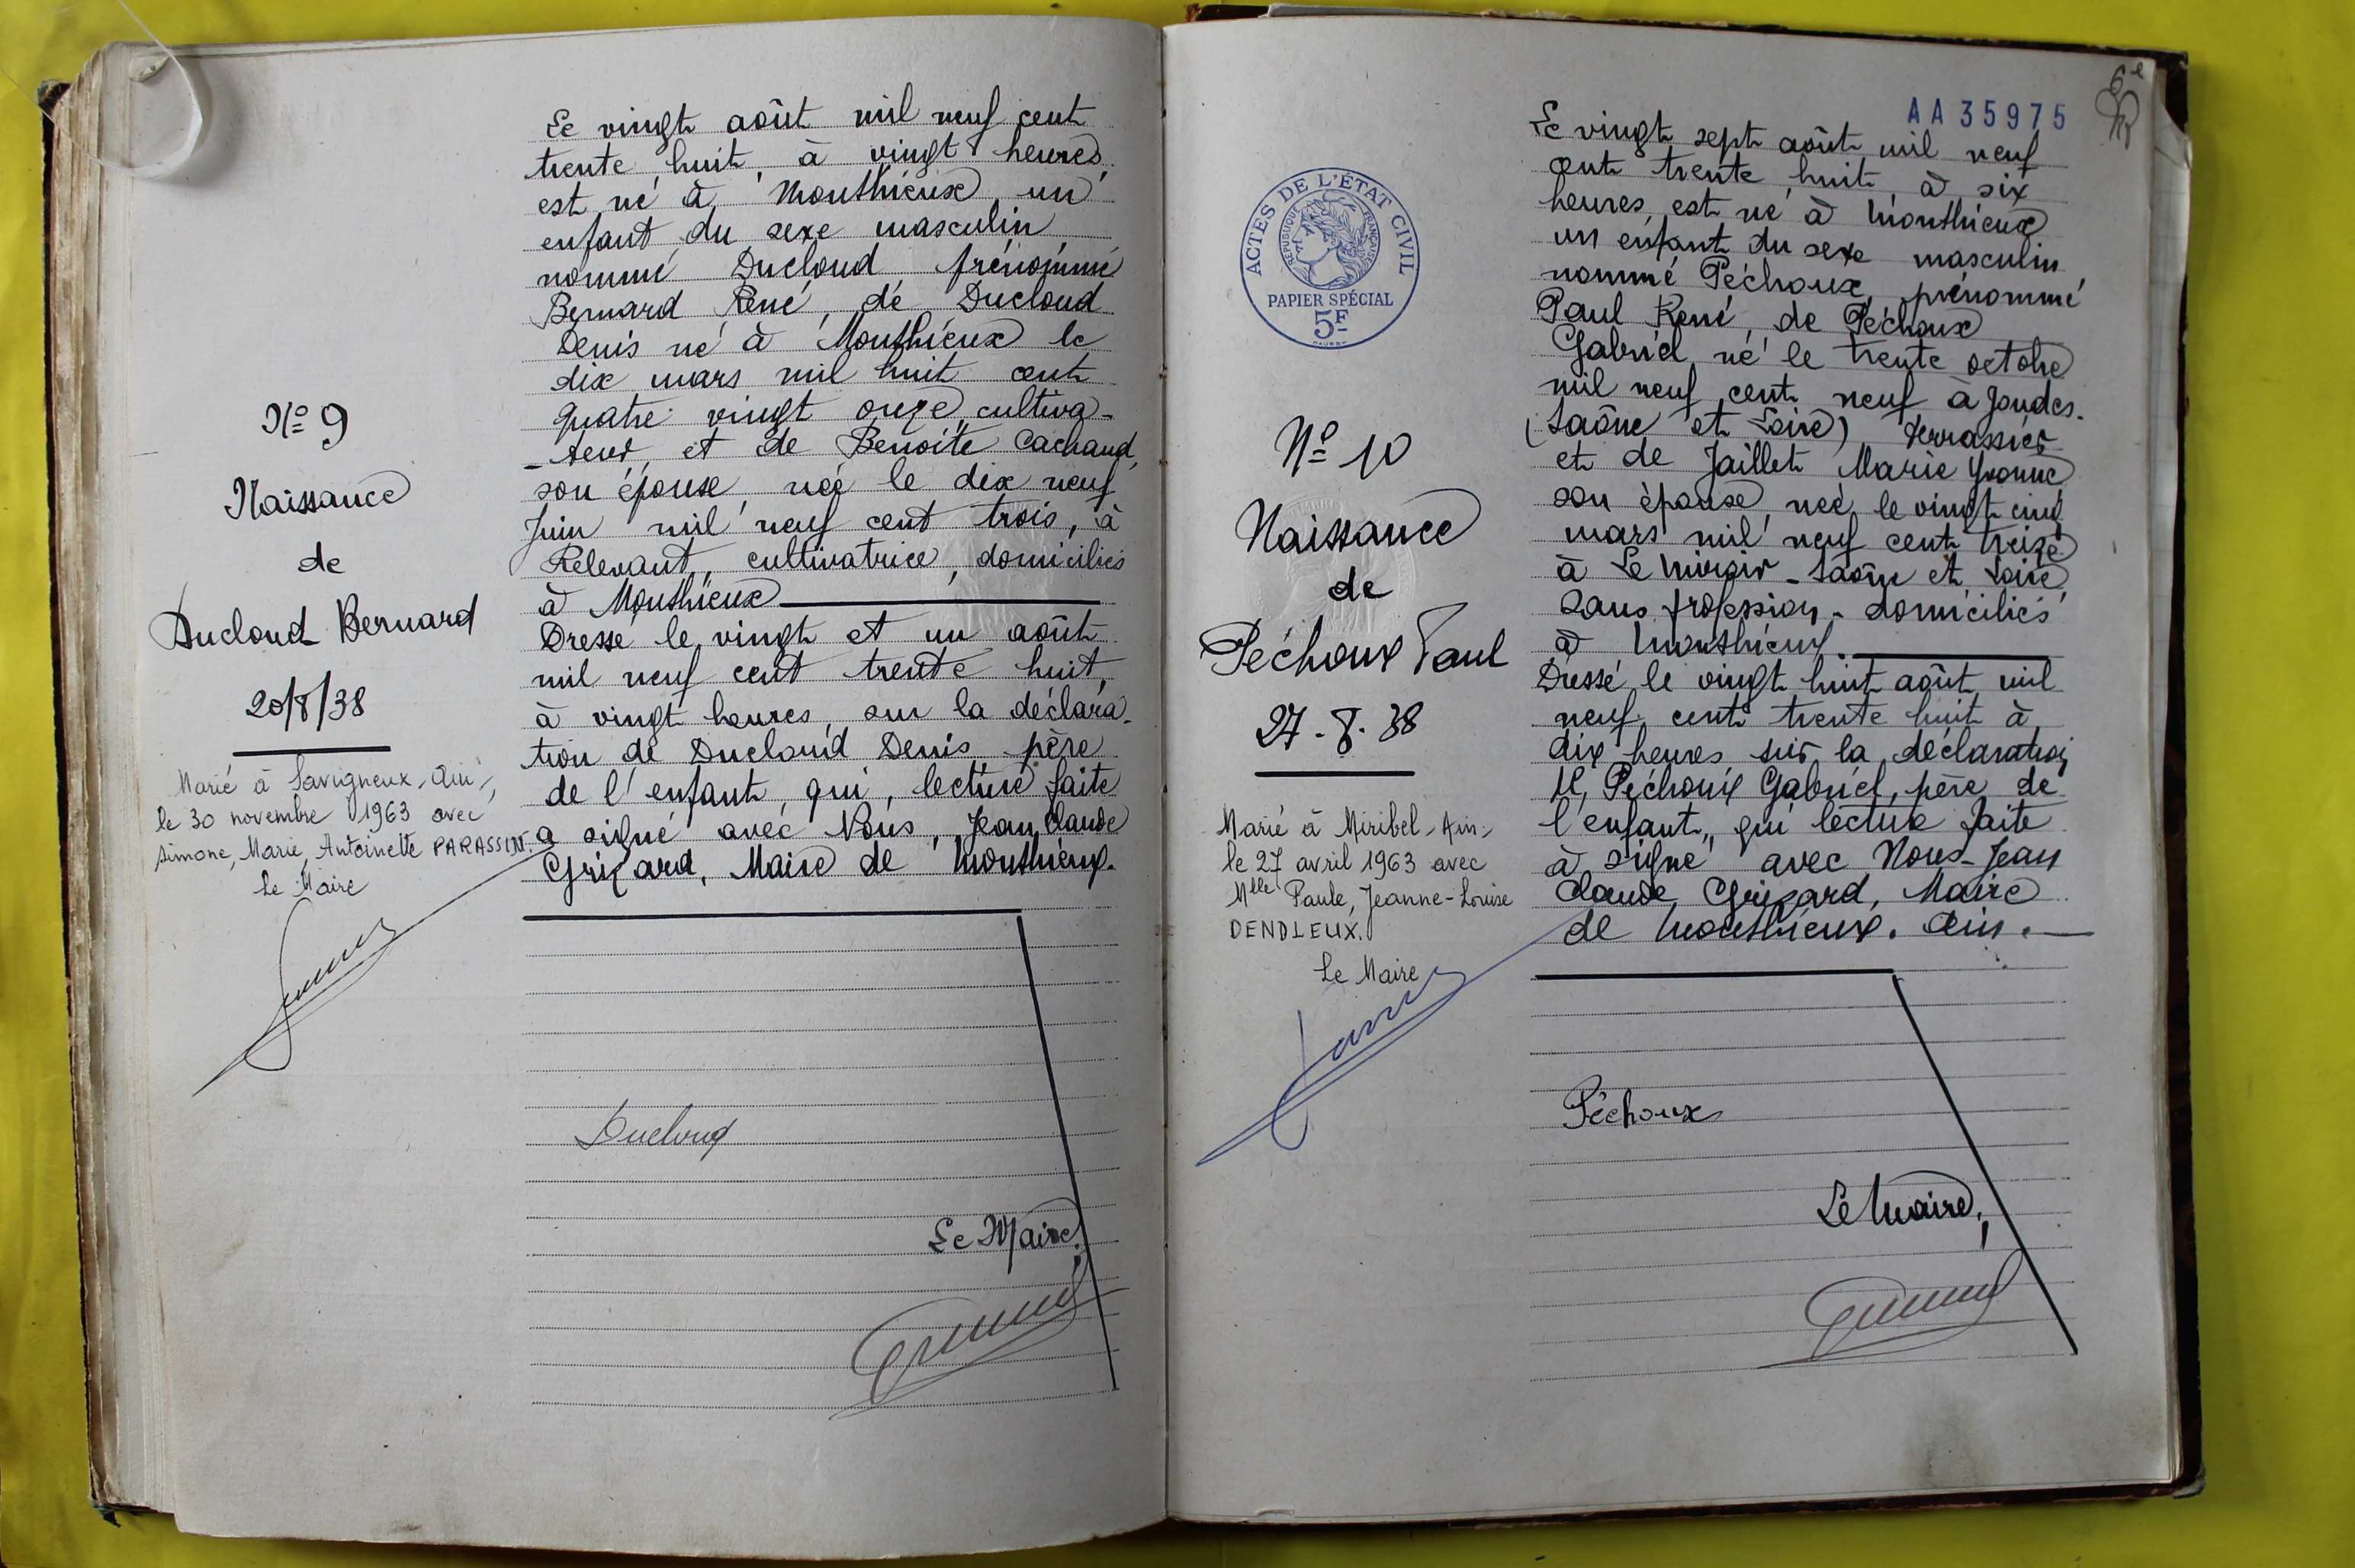 Le vingt août mil neuf cent
trente huit, à vingt heures,
est né à Monthieux, un
enfant du sexe masculin
nommé Ducloud prénommé
Bernard René, de Ducloud
Denis né à Monthieux le
dix mars mil huit cent
quatre vingt onze, cultiva-
-teur, et de Benoite Cachaud,
son épouse, née le dix neuf
Juin mil neuf cent trois, à
Relevant, cultivatrice, domiciliés
à Monthieux
Dressé le vingt et un août
mil neuf cent trente huit,
à vingt heures, sur la déclara-
tion de Ducloud Denis père
de l'enfant, qui, lecture faite
a signé avec Nous, Jean Claude
Grizard, Maire de Monthieux.
N° 9
Naissance
de
Ducloud Bernard
20/8/38
Marié à Savigneux-Ain-,
le 30 novembre 1963 avec
Simone, Marie, Antoinette PARASSIN.
Le Maire
Ducloud
Le Maire,
6e
AA 35975
ACTES DE L'ÉTAT CIVIL
RÉPUBLIQUE FRANÇAISE
PAPIER SPÉCIAL
5F
Le vingt sept août mil neuf
cent trente huit, à six
heures, est né à Monthieux
un enfant du sexe masculin
nommé Péchoux, prénommé
Paul René, de Péchoux
Gabriel né le trente octobre
mil neuf cent neuf à Joudes.
(Saône et Loire) terrassier
et de Jaillet Marie Yvonne
son épouse, née le vingt cinq
mars mil neuf cent treize
à Le Miroir - Saône et Loire,
sans profession - domiciliés
à Monthieux.
Dressé le vingt huit août mil
neuf cent trente huit à
dix heures sur la déclaration
de Péchoux Gabriel, père de
l'enfant, qui lecture faite
à signé avec Nous - Jean
Claude Grizard, Maire
de Monthieux. Ain.
N° 10
Naissance
de
Péchoux Paul
27-8-38
Marié à Miribel-Ain-
le 27 avril 1963 avec
Mlle Paule, Jeanne-Louise
DENDLEUX.
Le Maire
Péchoux
Le Maire,